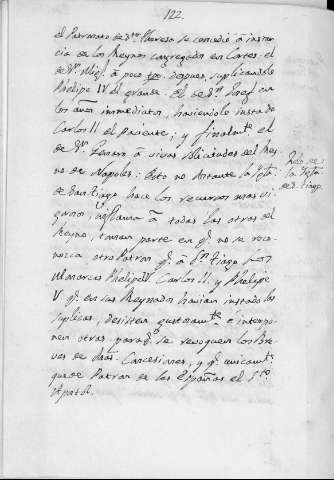 122.
el Patronato de Sta. Theresa se concedió á instan-
cia de los Reynos congregados en Cortes. el
de Sn. Migl. á poco tpo. despues, suplicandolo
Phelipe IV el grande. El de Sn. Josef en
los años immediatos, haciendole instado
Carlos II el Paciente; y finalmte. el
de Sn. Genaro á vivas solicitudes del Rey-
no de Napoles: Esto no obstante la Yglа.
de Santiago hace los recursos mas vi-
gorosos, inflama á todas las otras del
Reyno, toman parte en qe. no se reco-
nozca otro Patron qe. á Sn. Tiago. Los
Monarcas Phelipe IV. Carlos II. y Phelipe
V qe. en sus Reynados havian instado las
suplicas, desisten gustosamte. e interpo-
nen otras para qe. se revoquen los Bre-
ves de dhas. Concesiones, y qe. unicamte.
quede Patron de las Españas el Sto.
Apostol.
de la Ygla.
de S. Tiago